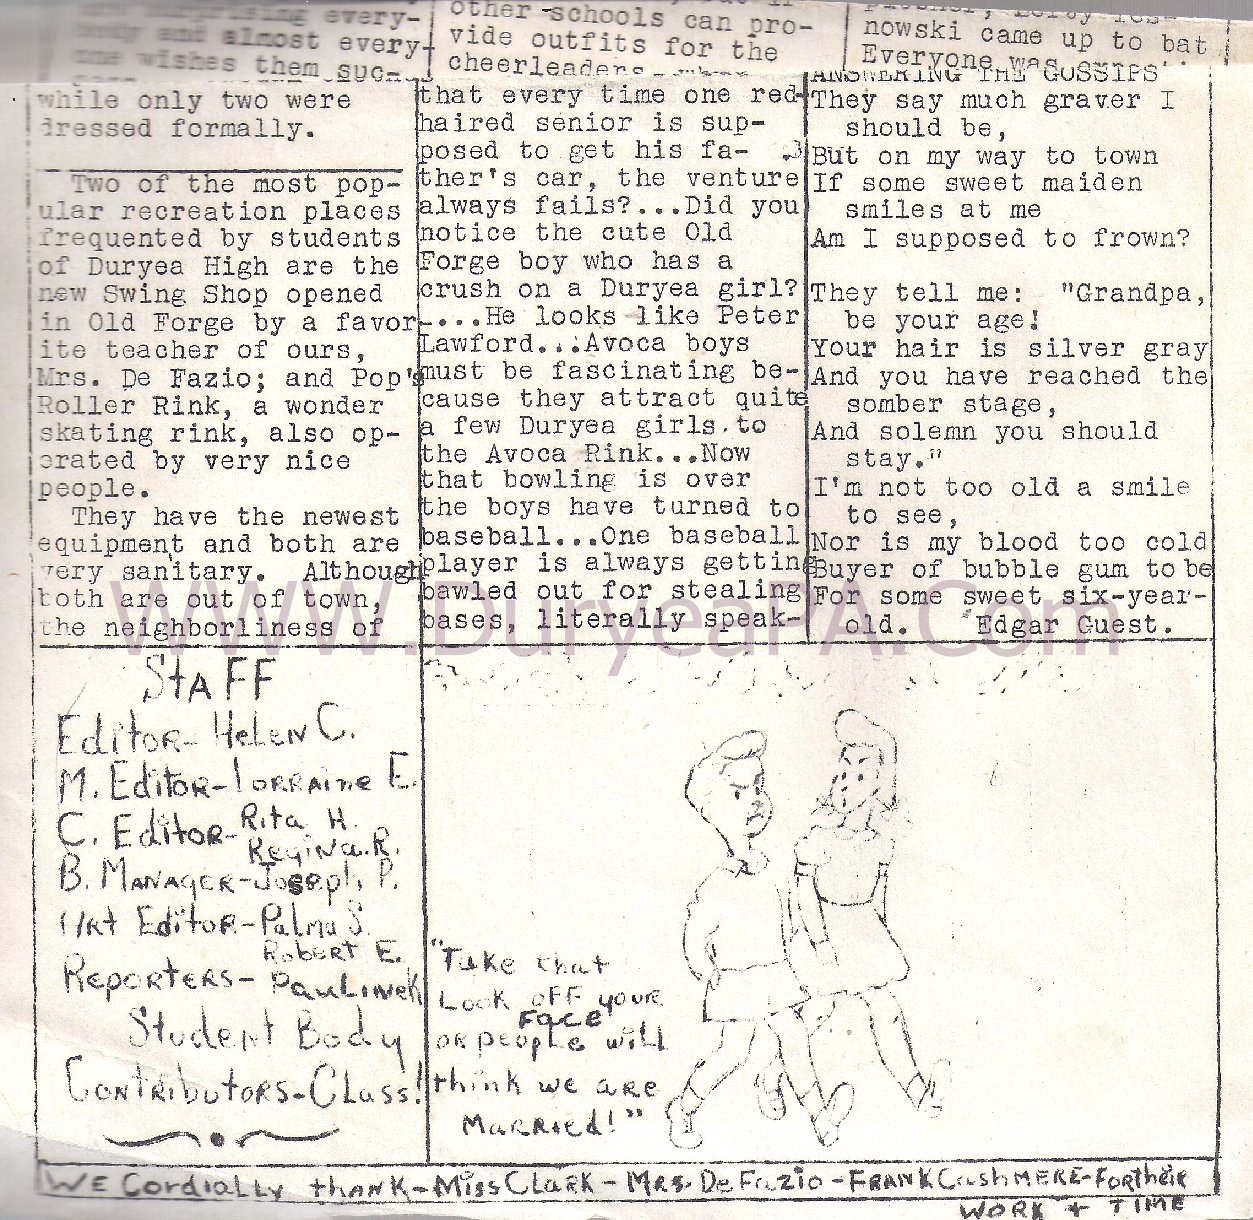 prising every-
body and almost every-
one wishes them suc-
while only two were
dressed formally.
Two of the most pop-
ular recreation places
frequented by students
of Duryea High are the
new Swing Shop opened
in Old Forge by a favor-
ite teacher of ours,
Mrs. De Fazio; and Pop's
Roller Rink, a wonder
skating rink, also op-
erated by very nice
people.
They have the newest
equipment and both are
very sanitary. Although
both are out of town,
the neighborliness of
other schools can pro-
vide outfits for the
cheerleaders
that every time one red-
haired senior is sup-
posed to get his fa-
ther's car, the venture
always fails?...Did you
notice the cute Old
Forge boy who has a
crush on a Duryea girl?
....He looks like Peter
Lawford...Avoca boys
must be fascinating be-
cause they attract quite
a few Duryea girls to
the Avoca Rink...Now
that bowling is over
the boys have turned to
baseball...One baseball
player is always getting
bawled out for stealing
bases, literally speak-
nowski came up to bat
Everyone was
ANSWERING THE GOSSIPS
They say much graver I
should be,
But on my way to town
If some sweet maiden
smiles at me
Am I supposed to frown?
They tell me: "Grandpa,
be your age!
Your hair is silver gray
And you have reached the
somber stage,
And solemn you should
stay."
I'm not too old a smile
to see,
Nor is my blood too cold
Buyer of bubble gum to be
For some sweet six-year-
old. Edgar Guest.
WWW.DuryeaPA.Com
STAFF
Editor- Helen C.
M. Editor-Lorraine E.
C. Editor-Rita H.
Regina R.
B. Manager-Joseph P.
Art Editor-Palma S.
Robert E.
Reporters- Paulinek
Student Body
Contributors-Class!
"Take that
Look off your
face
or people will
think we are
Married!"
We Cordially thank-Miss Clark-Mrs. DeFazio-Frank Cashmere-For their
Work + Time